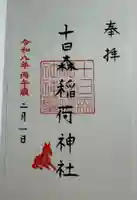 奉拝
十日森稲荷神社
令和八年丙午歳
二月一日